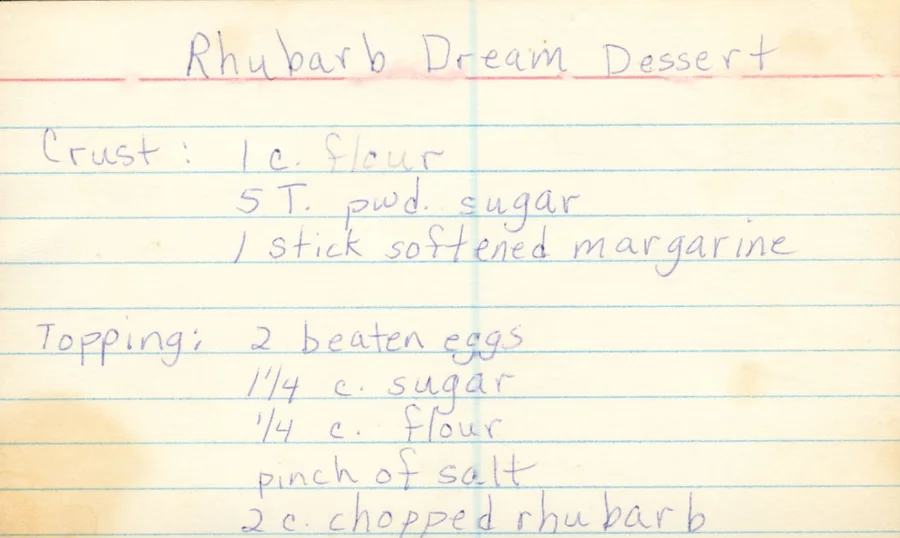 Rhubarb Dream Dessert
Crust: 1 c. flour
5 T. pwd. sugar
1 stick softened margarine
Topping: 2 beaten eggs
1 1/4 c. sugar
1/4 c. flour
pinch of salt
2 c. chopped rhubarb